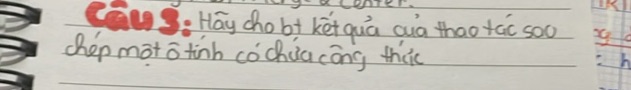 Câu 3: Hãy cho bt kết quả của thao tác sao
chép một ô tính có chứa công thức